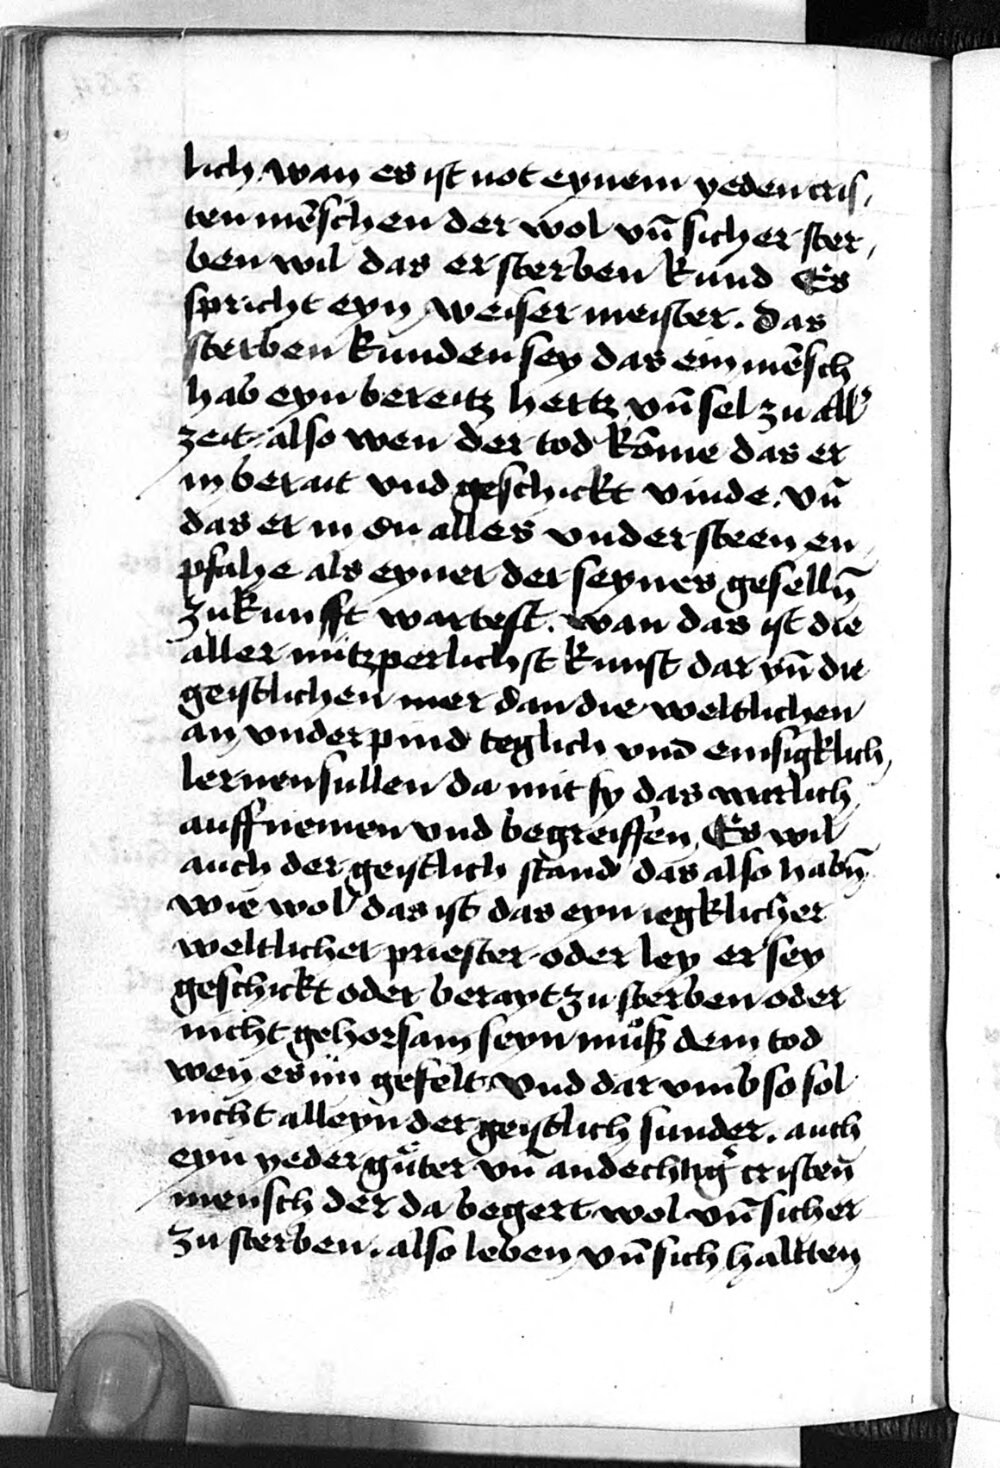 lich wan es ist not eynem yeden cris,
ten mēschen der wol vn̄ sicher ster,
ben wil das er sterben kund Es
spricht eyn weiser meister. das
sterben kunden sey das ein mēsch
hab eyn bereitz hertz vn̄ sel zu all
zeit also wen der tod kōme das er
in berait vnd geschickt vinde. vn̄
das er in on alles vndersteen en,
pfahe als eyner der seynes geselln̄
zukunfft wartest. wan das ist die
aller nutzperlichst kunst dar yn̄ die
geistlichen mer dan die weltlichen
an vnderpind teglich vnd emsigklich,
lernen sullen da mit sy das warlich
auffnemen vnd begreiffen Es wil
auch der geistlich stand das also habn̄
wie wol das ist das eyn iegklicher
weltlicher priester oder ley er sey
geschickt oder berayt zu sterben oder
nicht gehorsam seyn muͦß dem tod
wen es im gefelt vnd dar vmb so sol
nicht alleyn der geistlich sunder. auch
eyn yeder guͤter vn̄ andechtig cristen̄
mensch der da begert wol vn̄ sicher
zu sterben. also leben vn̄ sich haltten